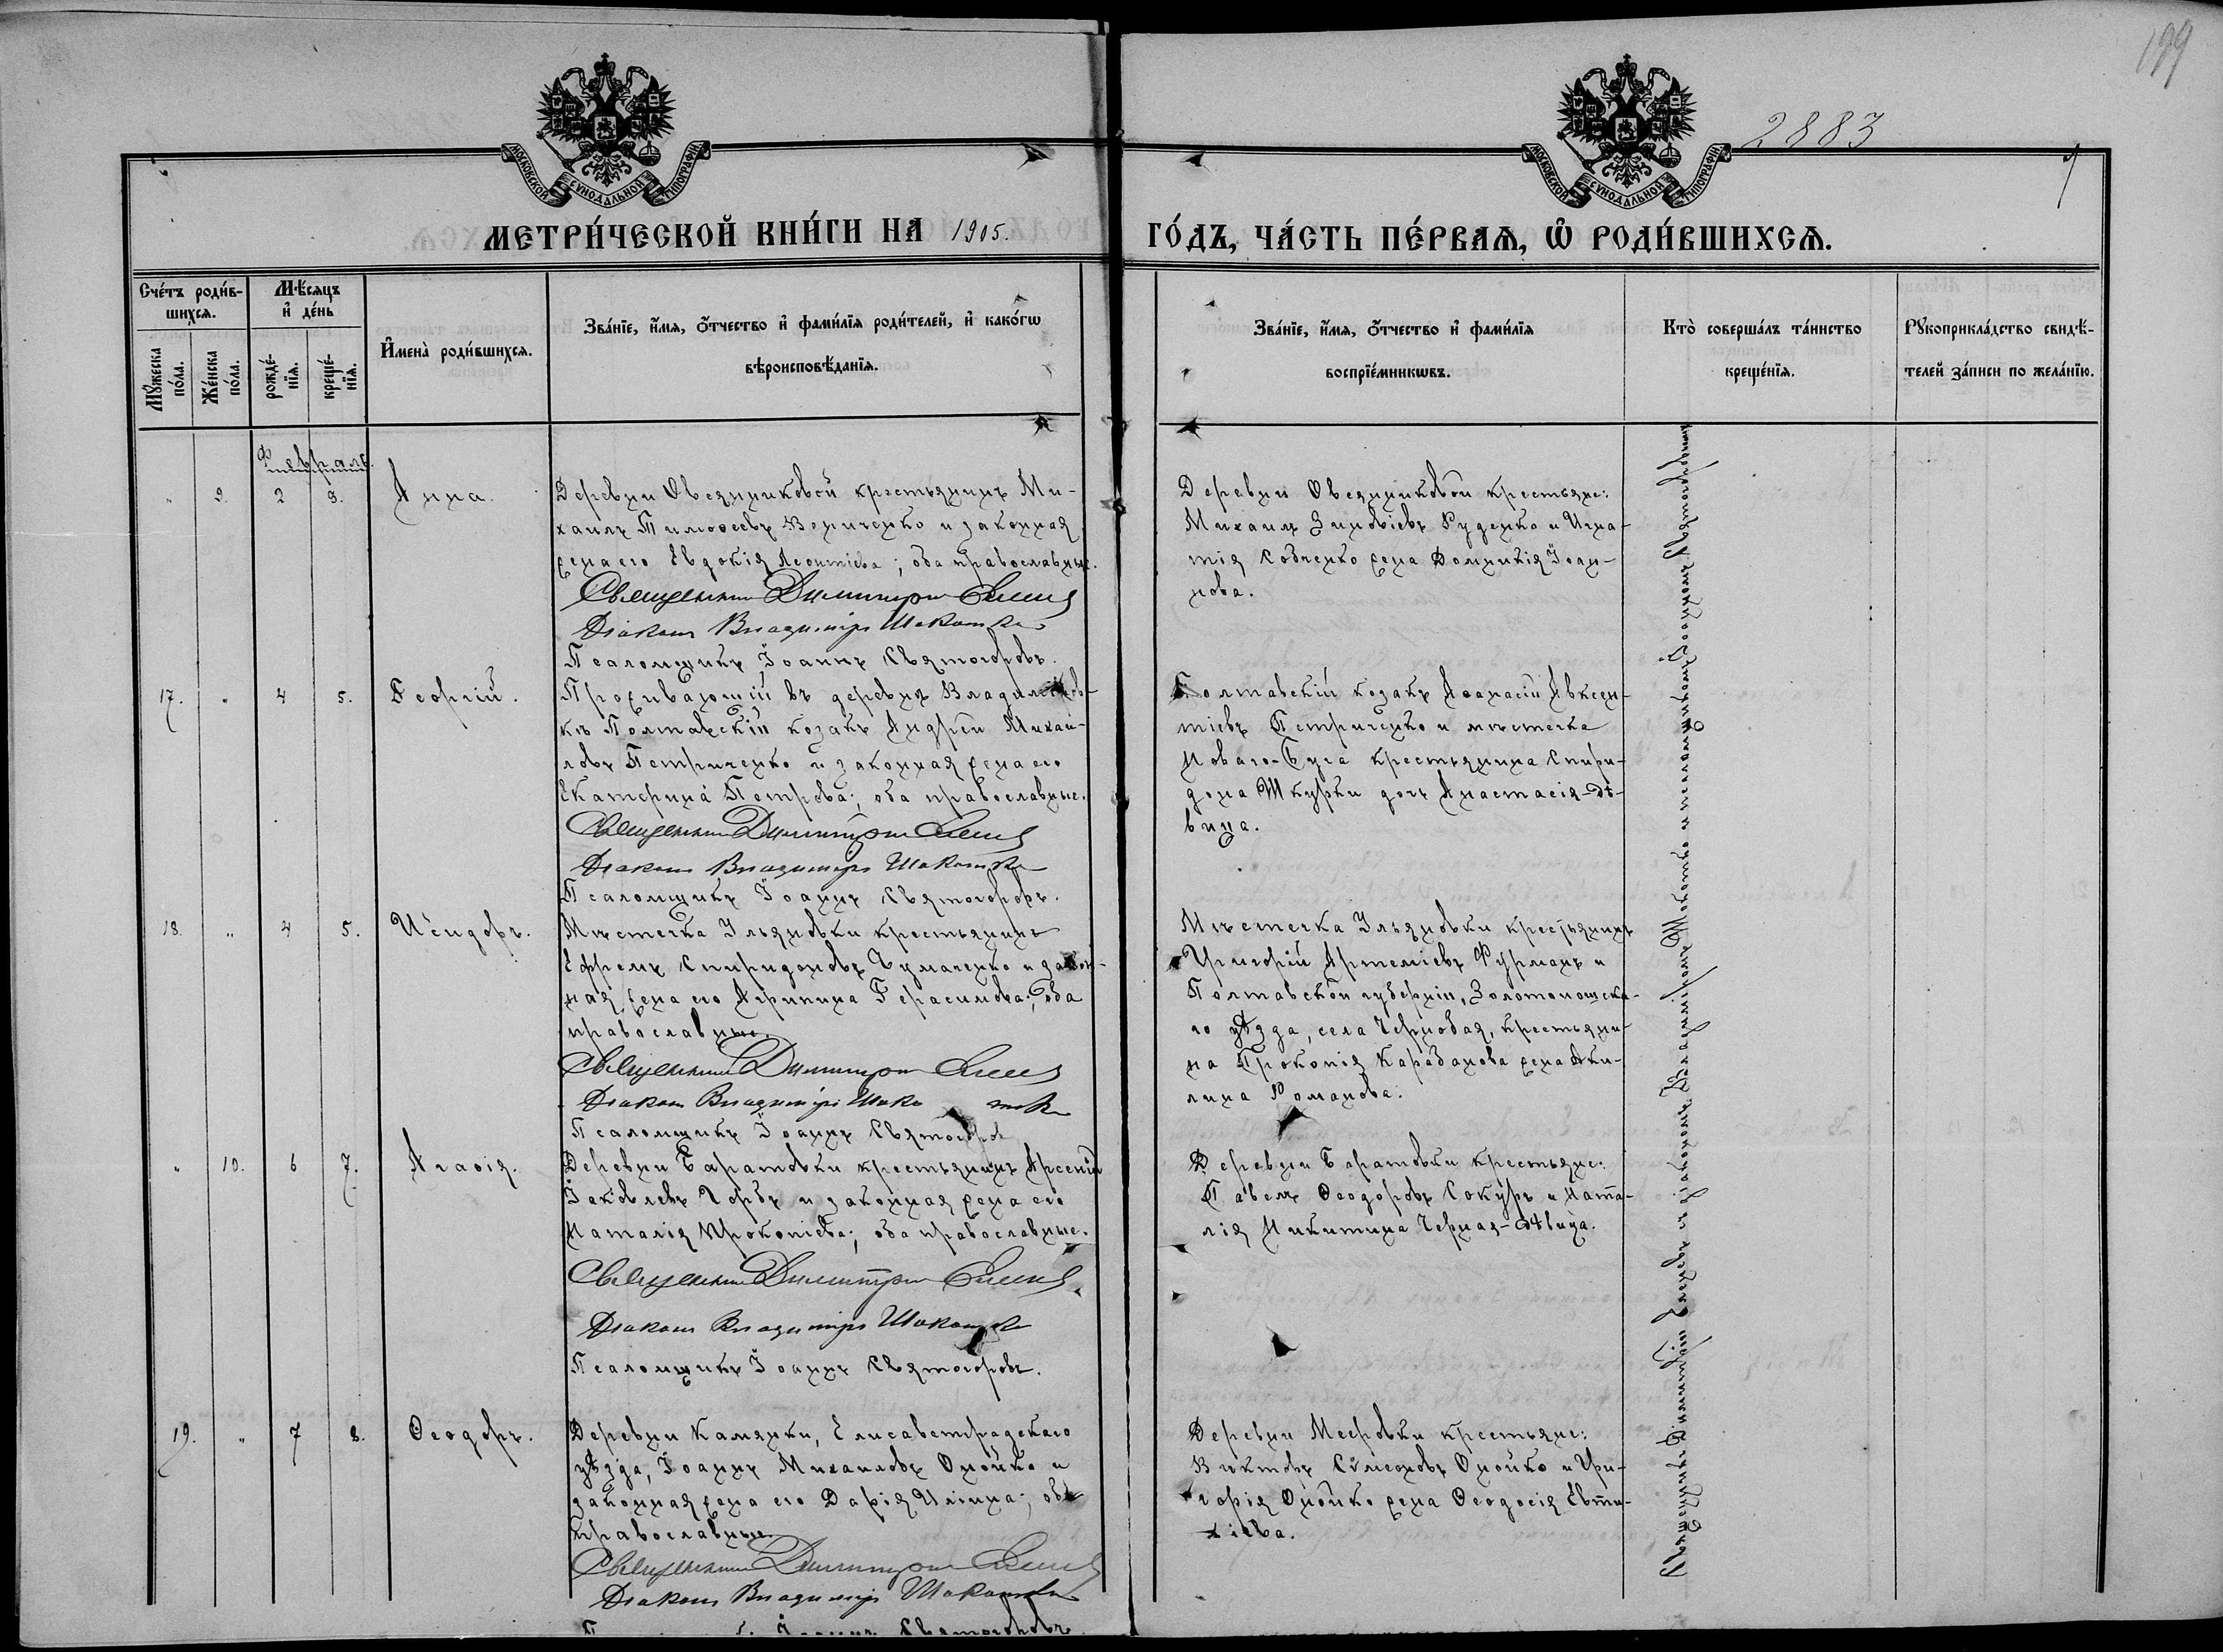 199
2883
МОСКОВСКОЙ СѴНОДАЛЬНОЙ ТИПОГРАФІИ
МОСКОВСКОЙ СѴНОДАЛЬНОЙ ТИПОГРАФІИ
МЕТРИ́ЧЕСКОЙ КНИ́ГИ НА 1905.
ГО́ДЪ, ЧА́СТЬ ПЕ́РВАѦ, Ѡ҆ РОДИ́ВШИХСѦ.
Сче́тъ роди́в-
шихсѧ.
Мꙋ́жеска по́ла.
Же́нска по́ла.
Мѣ́сѧцъ
и҆ де́нь
рожде́-
нїѧ.
креще́-
нїѧ.
И҆мена̀ роди́вшихсѧ.
Зва́нїе, и҆́мѧ, ѻ҆́тчество и҆ фами́лїѧ роди́телей, и҆ како́гѡ
вѣроисповѣ́данїѧ.
Зва́нїе, и҆́мѧ, ѻ҆́тчество и҆ фами́лїѧ
воспрїе́мникѡвъ.
Кто̀ соверша́лъ та́инство
креще́нїѧ.
Рꙋкоприкла́дство свидѣ́-
телей за́писи по жела́нїю.
Февраль.
„ 9. 2 3. Анна.
Деревни Овсянниковой крестьянинъ Ми-
хаилъ Тимоѳеевъ Величенко и законная
жена его Евдокія Леонтіева; оба православные.
Священникъ Димитрій
Діаконъ Владиміръ Шокотко
Псаломщикъ Іоаннъ Святогоровъ.
Деревни Овсянниковой крестьяне:
Михаилъ Зиновіевъ Руденко и Игна-
тія Совченко жена Домникія Іоан-
нова.
17. „ 4 5. Георгій.
Проживающій въ деревнѣ Владимиров-
кѣ Полтавскій козакъ Андрей Михай-
ловъ Петриченко и законная жена его
Екатерина Петрова; оба православные.
Священникъ Димитрій
Діаконъ Владиміръ Шокотко
Псаломщикъ Іоаннъ Святогоровъ.
Полтавскій козакъ Аѳанасій Авксен-
тіевъ Петриченко и мѣстечка
Новаго-Буга крестьянина Спири-
дона Шкурки дочь Анастасія-дѣ-
вица.
18. „ 4 5. Исидоръ.
Мѣстечка Ульяновки крестьянинъ
Ефремъ Спиридоновъ Чумаченко и закон-
ная жена его Агрипина Герасимова; оба
православные.
Священникъ Димитрій
Діаконъ Владиміръ Шокотко
Псаломщикъ Іоаннъ Святогоровъ
Мѣстечка Ульяновки крестьянинъ
Григорій Артеміевъ Фурманъ и
Полтавской губерніи, Золотоношска-
го уѣзда, села Чернобая, крестьяни-
на Прокопія Карабанова жена Аки-
лина Романова.
„ 10. 6 7. Агаѳія.
Деревни Баратовки крестьянинъ Арсеній
Іаковлевъ Горбъ и законная жена его
Наталія Прокопіева; оба православные.
Священникъ Димитрій
Діаконъ Владиміръ Шокотко
Псаломщикъ Іоаннъ Святогоровъ.
Деревни Баратовки крестьяне:
Павелъ Ѳеодоровъ Сокуръ и Ната-
лія Никитина Черная-дѣвица.
19. „ 7 8. Ѳеодоръ.
Деревни Камянки, Елисаветградскаго
уѣзда, Іоаннъ Михаиловъ Онойко и
законная жена его Дарія Иліина; оба
православные.
Священникъ Димитрій
Діаконъ Владиміръ Шокотко
Іоаннъ Святогоровъ
Деревни Месровки крестьяне:
Викторъ Сѵмеоновъ Онойко и Гри-
горія Онойко жена Ѳеодосія Евти-
хіева.
Священникъ Димитрій съ діакономъ Владиміромъ Шокотко и псаломщикомъ Іоанномъ Святогоровымъ.